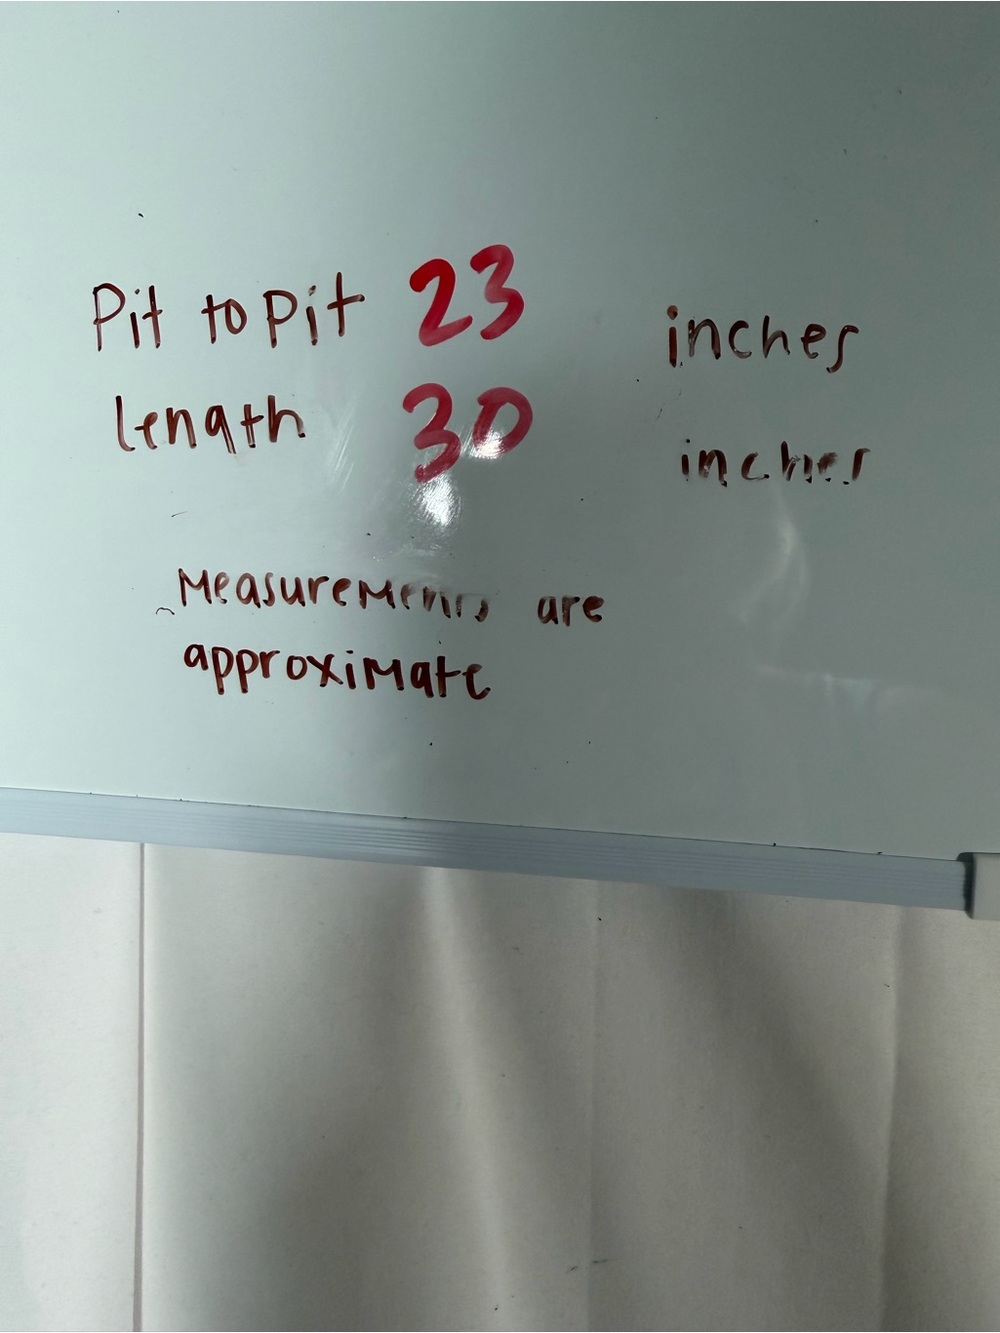 Pit to pit 23 inches
length 30 inches
Measurements are
approximate